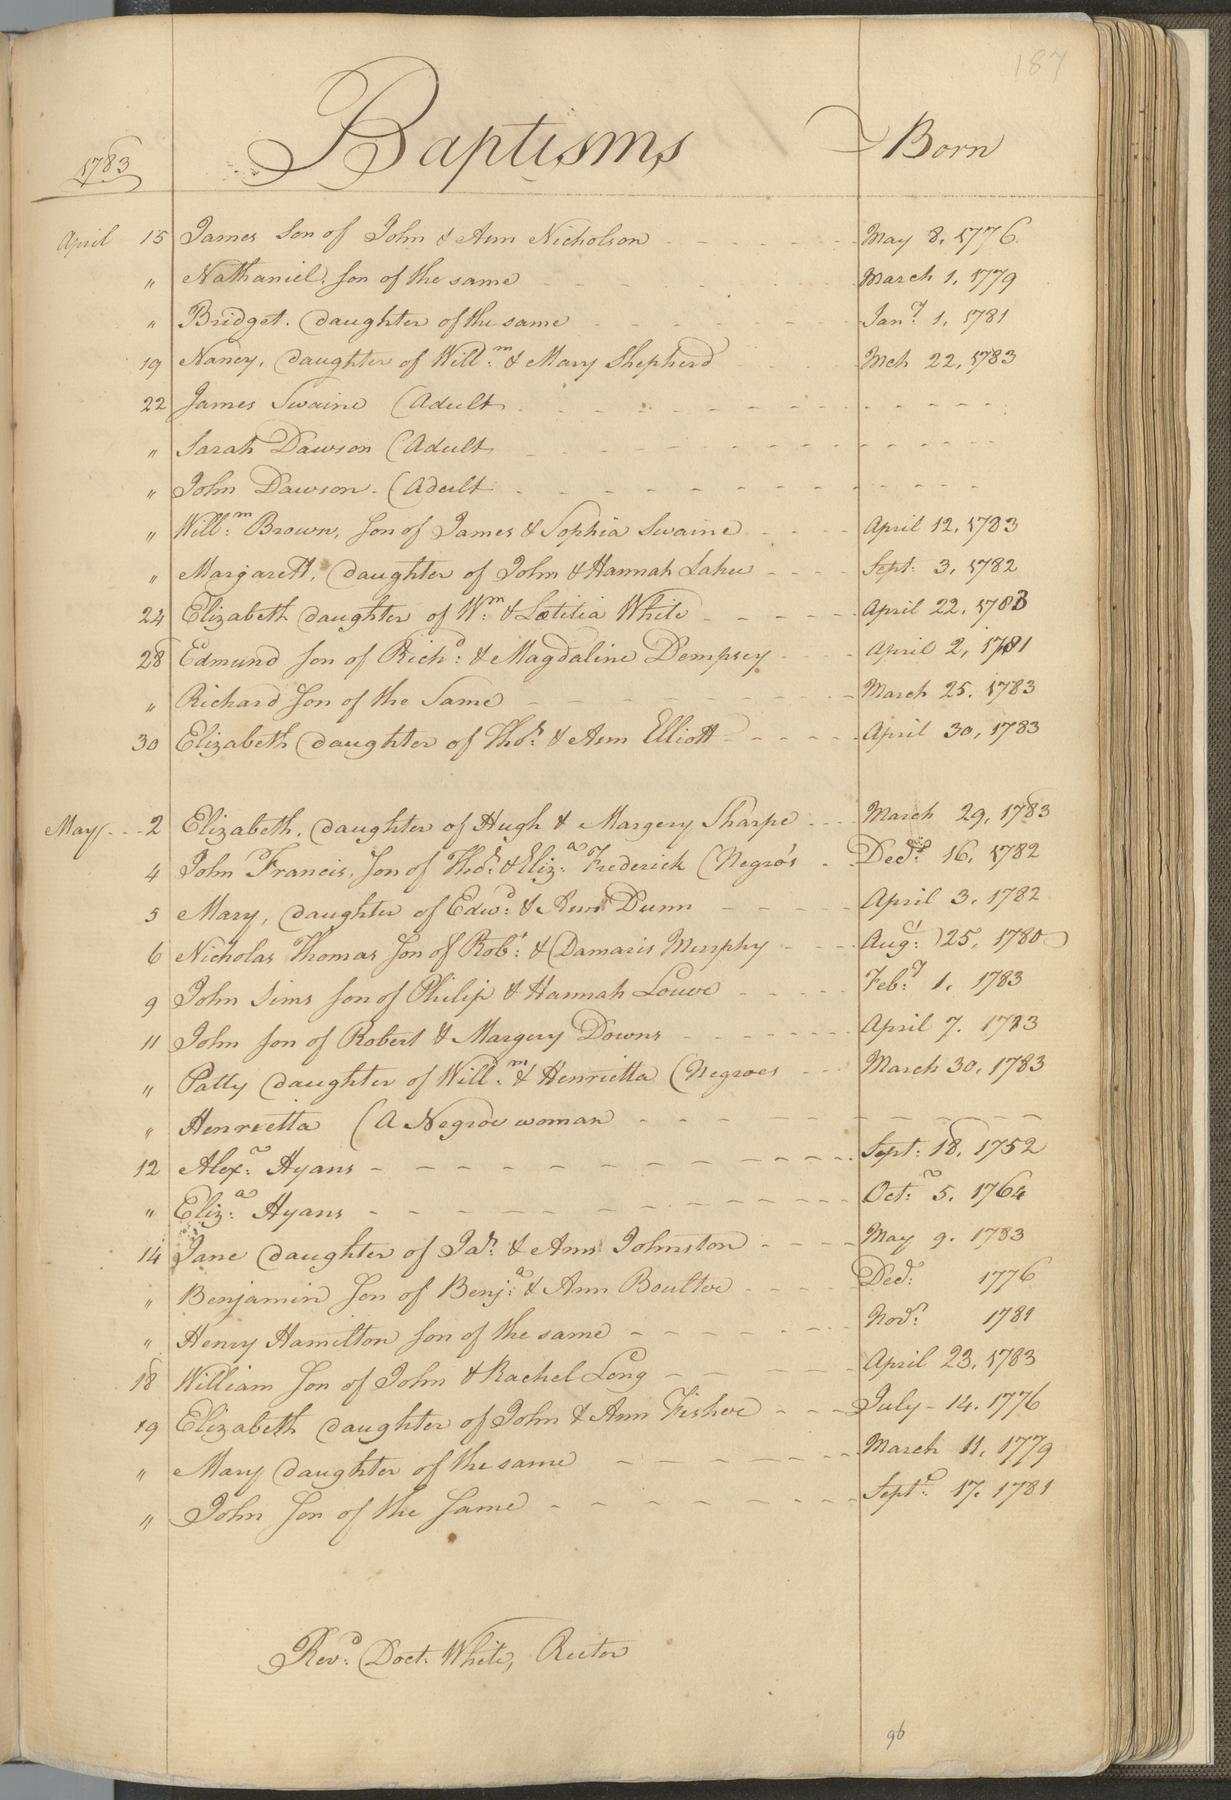 187
1783 Baptisms Born
April 15 James Son of John & Ann Nicholson May 8, 1776
" Nathaniel, Son of the same March 1, 1779
" Bridget. daughter of the same Jany. 1, 1781
19 Nancy, daughter of Willm. & Mary Shepherd Mch 22, 1783
22 James Swaine (Adult
" Sarah Dawson (Adult
" John Dawson. (Adult
" Willm. Brown, Son of James & Sophia Swaine April 12, 1783
" Margarett, daughter of John & Hannah Sept. 3, 1782
24 Elizabeth daughter of Wm. & Lætitia White April 22, 1783
28 Edmund Son of Richd. & Magdaline Dempsey April 2, 1781
" Richard Son of the Same March 25. 1783
30 Elizabeth daughter of Thos. & Ann Elliott April 30, 1783
May 2 Elizabeth, daughter of Hugh & Margery Sharpe March 29, 1783
4 John Francis, Son of Thos. & Eliza. Frederick (Negro's Decr. 16, 1782
5 Mary, daughter of Edwd. & Ann Dunn April 3, 1782
6 Nicholas Thomas Son of Robt. & Damaris Murphy Augt. 25, 1780
9 John Sims Son of Philip & Hannah Louve Feby. 1, 1783
11 John Son of Robert & Margery Downs April 7. 1783
" Patty daughter of Willm. & Henrietta (Negroes March 30, 1783
" Henrietta (A Negroe woman
12 Alexr. Hyans Sept. 18, 1752
" Eliza. Hyans Octr. 5. 1764
14 Jane daughter of Jas. & Ann Johnston May 9. 1783
" Benjamin Son of Benja. & Ann Boulter Decr. 1776
" Henry Hamilton Son of the same Novr. 1781
18 William Son of John & Rachel Long April 23, 1783
19 Elizabeth daughter of John & Ann Fisher July 14. 1776
" Mary daughter of the same March 11, 1779
" John Son of the Same Septr. 17. 1781
Revd. Doct. White, Rector
96